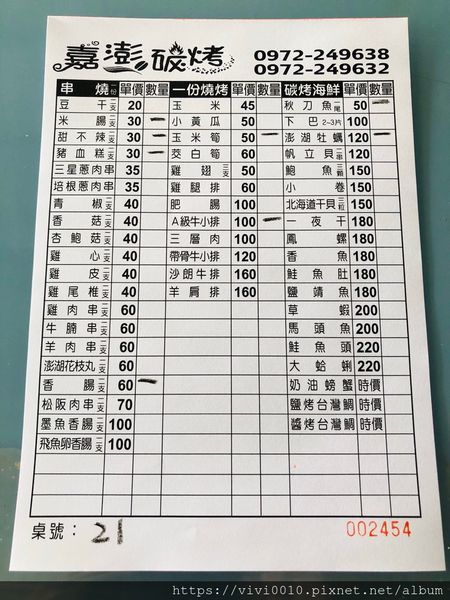 嘉澎碳烤 0972-249638
0972-249632
串燒一份 單價 數量 一份燒烤 單價 數量 碳烤海鮮 單價 數量
豆干二支 20 玉米 45 秋刀魚一尾 50 一
米腸二支 30 一 小黃瓜 50 下巴2~3片 100
甜不辣二支 30 一 玉米筍 50 一 澎湖牡蠣 120 一
豬血糕二支 30 一 茭白筍 60 帆立貝二串 120
三星蔥肉串 35 雞翅三支 50 鮑魚三顆 150
培根蔥肉串 35 雞腿排 60 小卷 150
青椒二支 40 肥腸 100 北海道干貝三粒 150
香菇二支 40 A級牛小排 100 一 一夜干 180
杏鮑菇二支 40 三層肉 100 鳳螺 180
雞心二支 40 帶骨牛小排 120 香魚 180
雞皮二支 40 沙朗牛排 160 鮭魚肚 180
雞尾椎二支 40 羊肩排 160 鹽鯖魚 180
雞肉串二支 60 草蝦 200
牛腩串二支 60 馬頭魚 200
羊肉串二支 60 鮭魚頭 220
澎湖花枝丸二支 60 大蛤蜊 220
香腸二支 60 一 奶油螃蟹 時價
松阪肉串二支 70 鹽烤台灣鯛 時價
墨魚香腸二支 100 醬烤台灣鯛 時價
飛魚卵香腸二支 100
桌號： 21 002454
https://vivi0010.pixnet.net/album